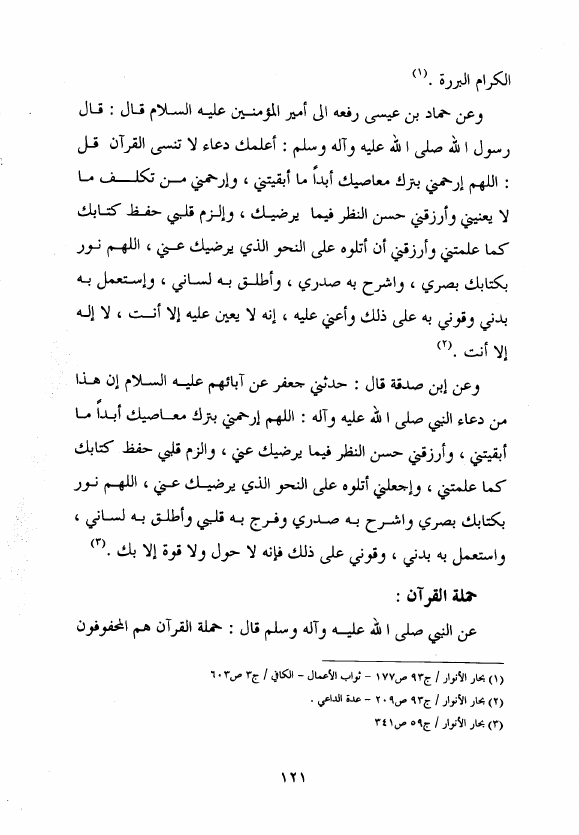 الكرام البررة .(١)
وعن حماد بن عيسى رفعه الى أمير المؤمنـين عليـه السـلام قـال : قـال
رسول الله صلى الله عليه وآله وسلم : أعلمك دعاء لا تنسى القرآن قـل
: اللهم إرحمني بترك معاصيك أبداً ما أبقيتني ، وإرحمني مـن تكلـف مـا
لا يعنيني وأرزقني حسن النظر فيما يرضيـك ، وإلـزم قلبي حفـظ كتـابك
كما علمتني وأرزقني أن أتلوه على النحو الذي يرضيك عـني ، اللهـم نـور
بكتابك بصري ، واشرح به صدري ، وأطلـق بـه لسـاني ، وإستعمل بـه
بدني وقوني به على ذلك وأعني عليه ، إنه لا يعين عليه إلا أنـت ، لا إلـه
إلا أنت .(٢)
وعن إبن صدقة قال : حدثني جعفر عن آبائهم عليـه السـلام إن هـذا
من دعاء النبي صلى الله عليه وآله : اللهم إرحمني بترك معـاصيك أبـداً مـا
أبقيتني ، وأرزقني حسن النظر فيما يرضيك عني ، والزم قلبي حفظ كتابك
كما علمتني ، وإجعلني أتلوه على النحو الذي يرضيـك عـني ، اللهـم نـور
بكتابك بصري واشـرح بـه صـدري وفـرج بـه قلـبي وأطلـق به لسـاني ،
واستعمل به بدني ، وقوني على ذلك فإنه لا حول ولا قوة إلا بك .(٣)
حملة القرآن :
عن النبي صلى الله عليـه وآله وسلم قال : حملة القرآن هم المحفوفون
(١) بحار الأنوار / ج٩٣ ص١٧٧ - ثواب الأعمال - الكافي / ج٣ ص٦٠٣
(٢) بحار الأنوار / ج٩٣ ص٢٠٩ - عدة الداعي .
(٣) بحار الأنوار / ج٥٩ ص٣٤١
١٢١